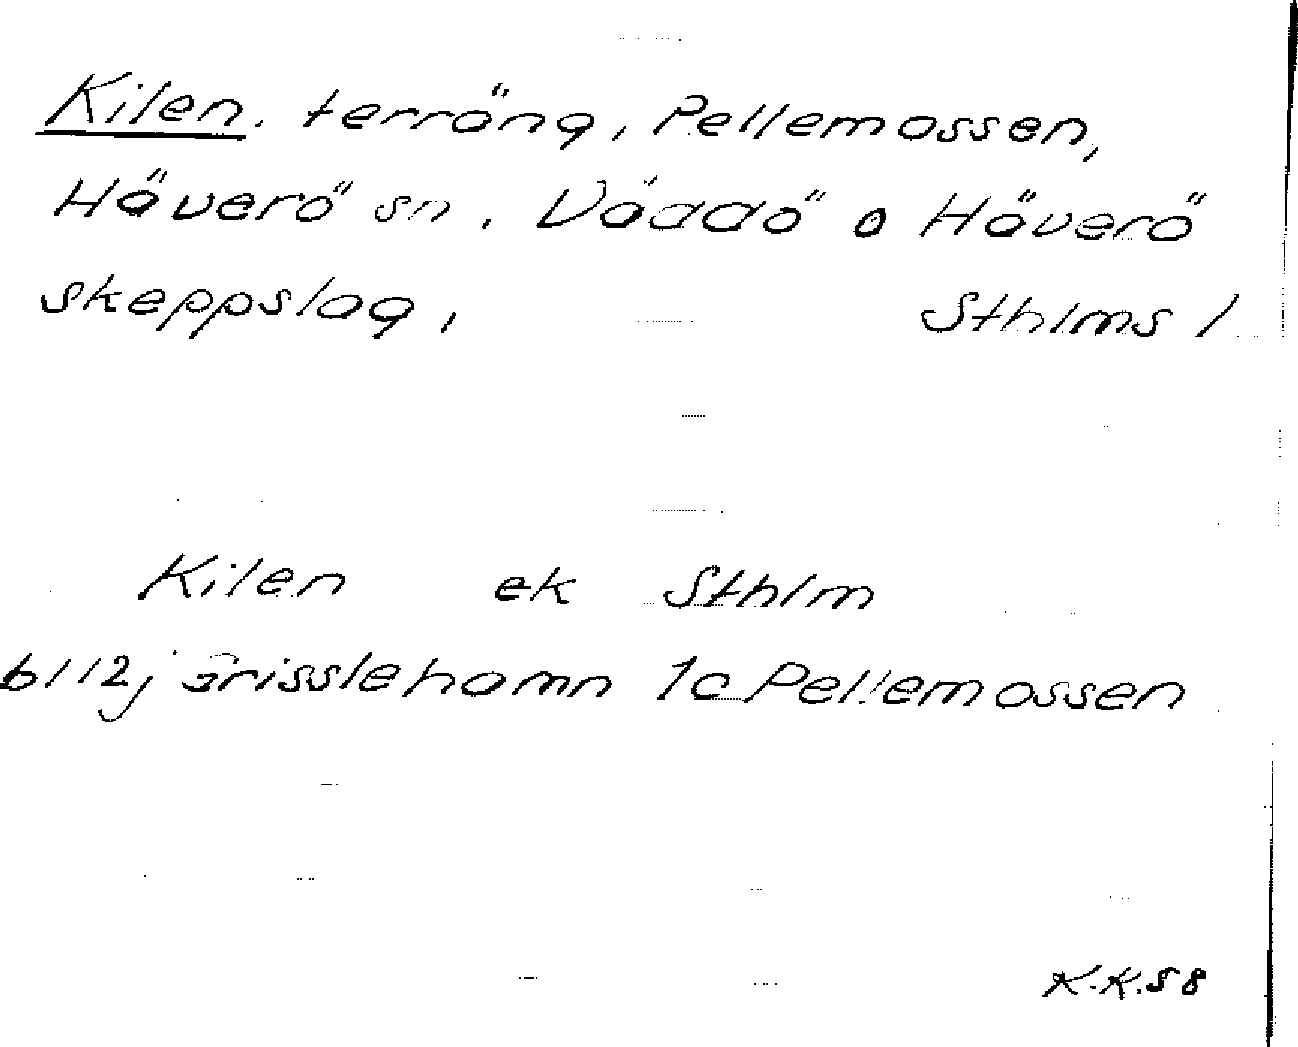 Kilen, terräng, Pellemossen,
Häverö sn, Väddö o Häverö
skeppslag, Sthlms l
Kilen ek Sthlm
bl 12j Grisslehamn 1c Pellemossen
K.K.58